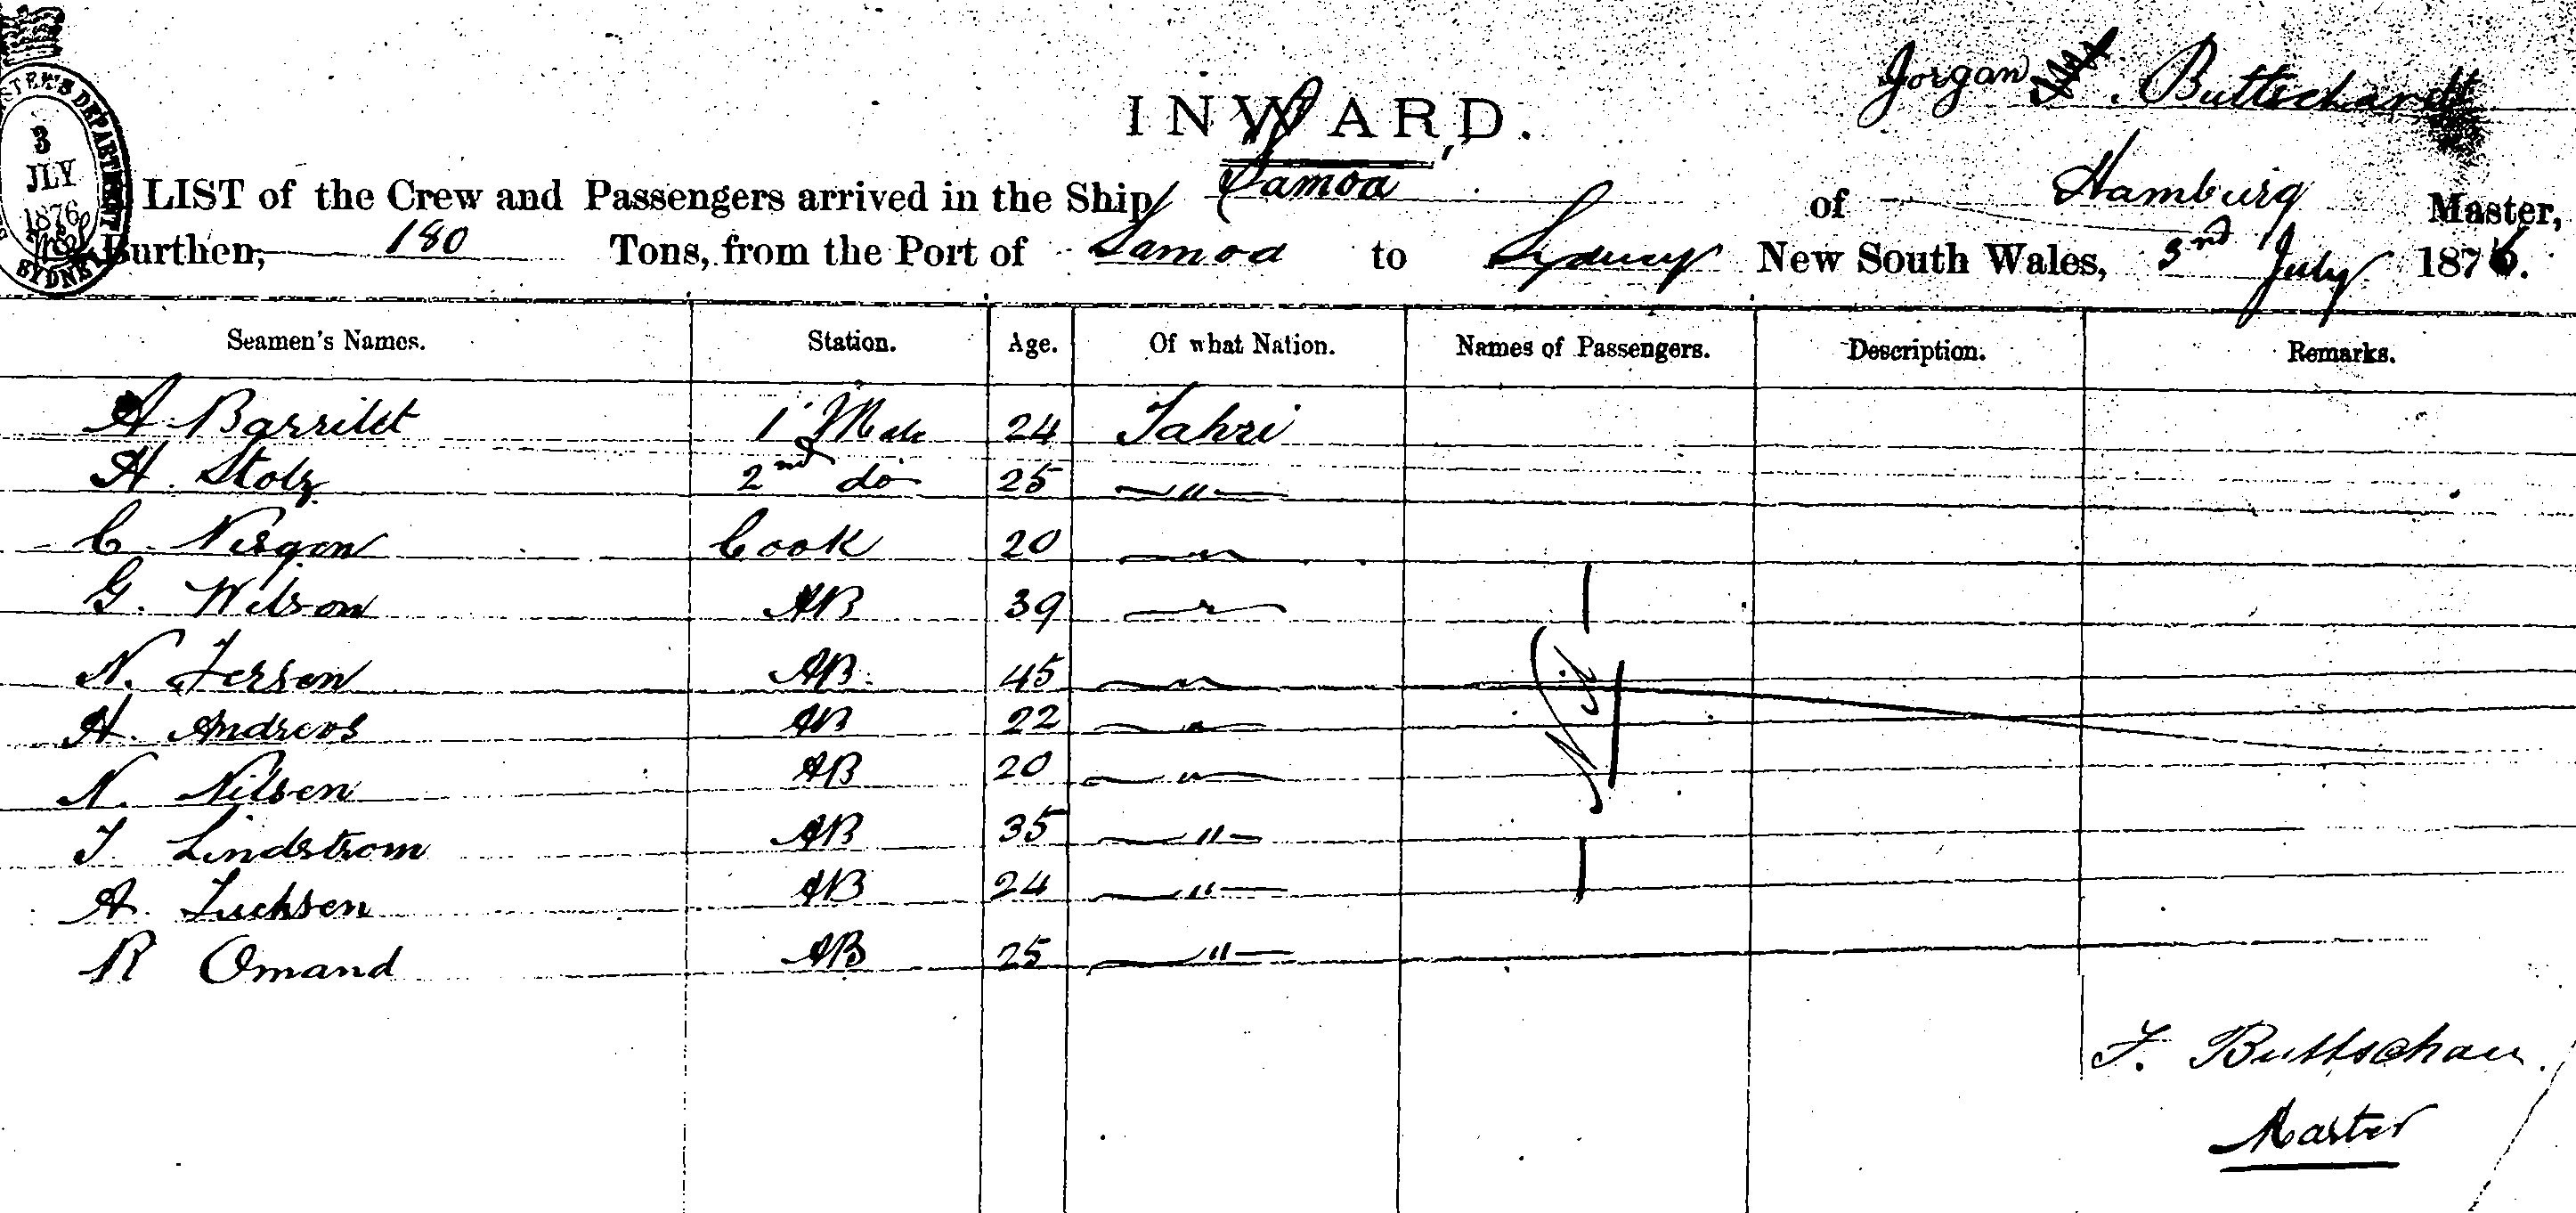 Jorgan Buttschardt
INWARD.
LIST of the Crew and Passengers arrived in the Ship Samoa of Hamburg Master,
Burthen, 180 Tons, from the Port of Samoa to Sydney New South Wales, 3rd July 1876.
3
JLY
1876
SYDNEY
Seamen's Names. Station. Age. Of what Nation. Names of Passengers. Description. Remarks.
A Barrilet 1 Mate 24 Tahri
H. Stolz 2nd do 25 "
C. Nisgen Cook 20 "
G. Wilson AB 39 "
N. Jersen AB. 45 "
H. Andrews AB 22 "
N. Nilsen AB 20 "
J Lindstrom AB 35 "
A. Luchsen AB 24 "
R Omand AB 25 "
Nil
F. Buttschau
Master